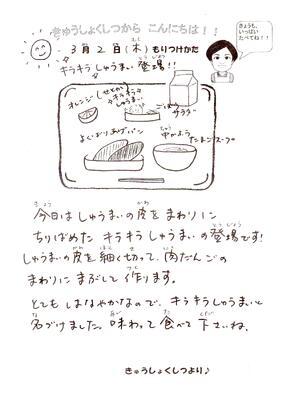 きゅうしょくしつから こんにちは！！
きょうも、
いっぱい
たべてね！！
3月2日(木) もりつけかた
キラキラ しゅうまい 登場!!
オレンジ
しせとか
キラキラ
しゅうまい
ごぼう
サラダ
よくばりあげパン
中かふう
たまごスープ
今日は しゅうまいの 皮を まわりに
ちりばめた キラキラ しゅうまい の 登場です!
しゅうまいの 皮を 細く切って、肉だんごの
まわりに まぶして 作ります。
とても はなやかなので、キラキラしゅうまいと
名づけました。味わって 食べて 下さいね。
きゅうしょくしつより♪